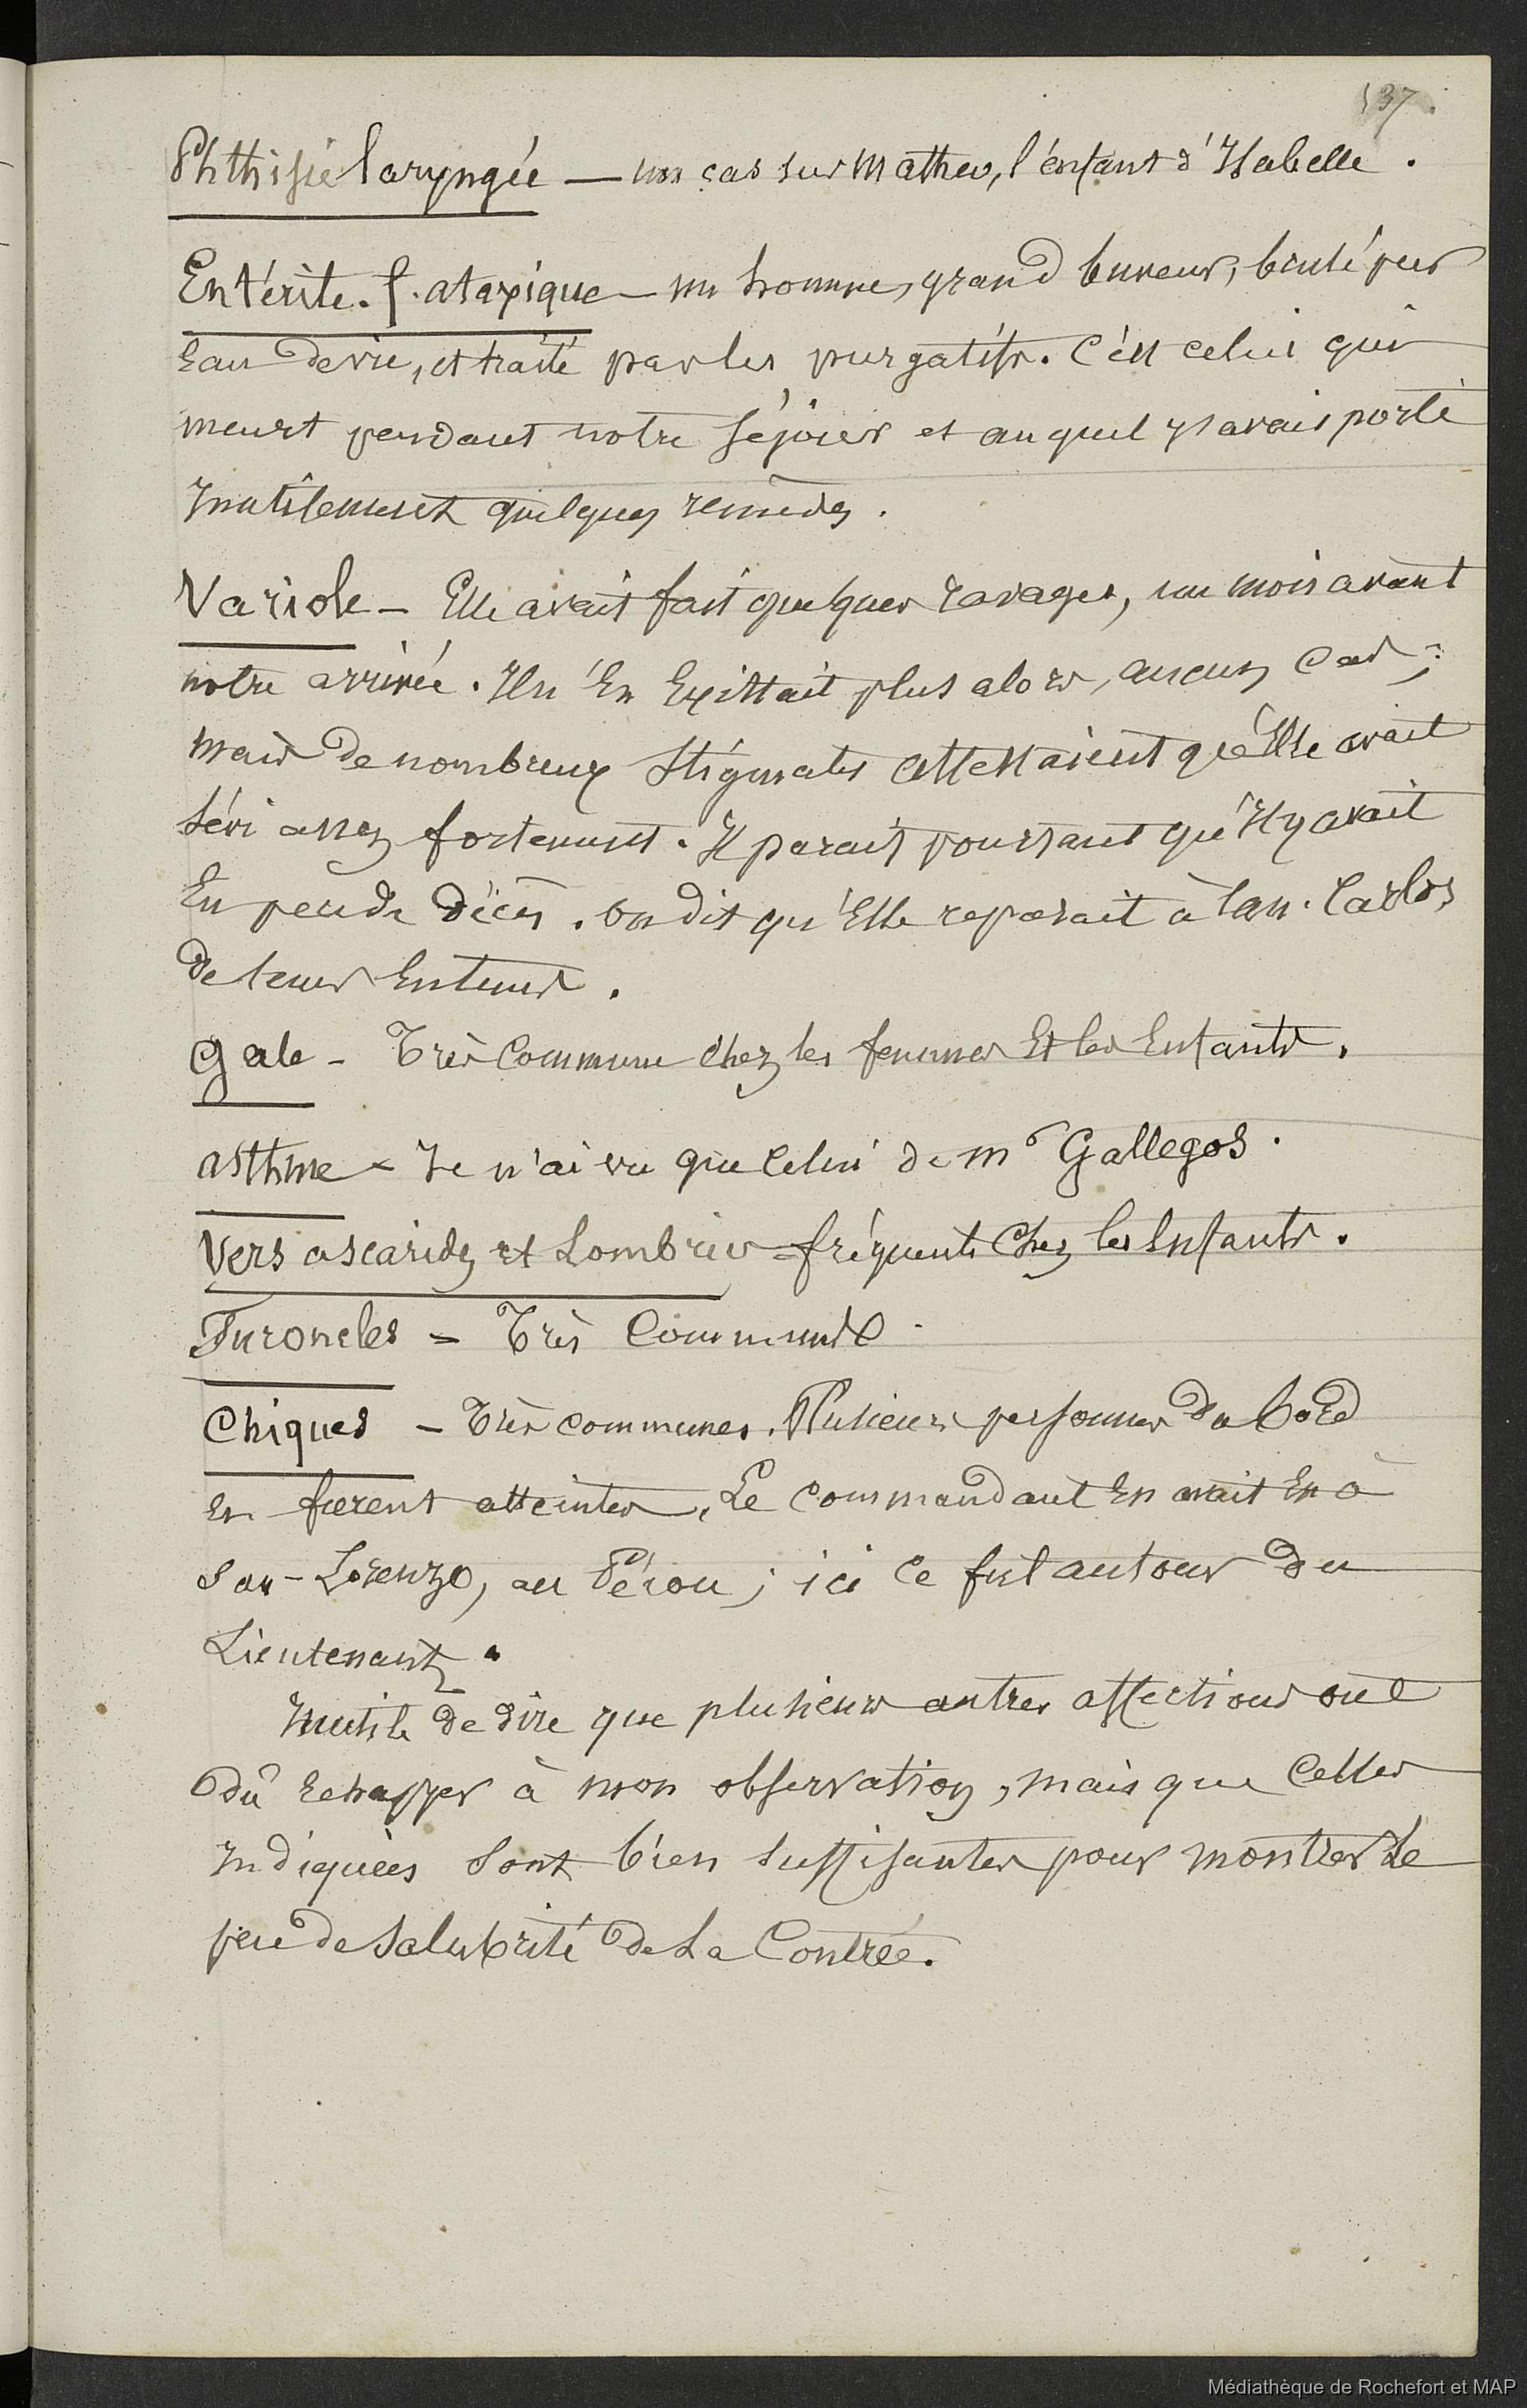 137.
Phthisie laryngée — un cas sur Matheo, l'enfant d'Isabelle.
Entérite. f. ataxique — un homme, grand buveur, brulé par
Eau de vie, et traité par les purgatifs. C'est celui qui
meurt pendant notre séjour et auquel j'avais porté
Inutilement quelques remèdes.
Variole — Elle avait fait quelques ravages, un mois avant
notre arrivée. Il n'En Existait plus alors, aucun cas;
mais de nombreux stigmates attestaient qu'Elle avait
sévi assez fortement. Il parait pourtant qu'il y avait
Eu peu de décès. On dit qu'Elle reparait à San-Carlos
de tems En tems.
Gale — Très Commune chez les femmes Et les Enfants.
Asthme — Je n'ai vu que Celui de Mr Gallegos.
Vers ascarides et Lombrics — fréquents Chez les Enfants.
Furoncles = Très Communs.
Chiques — Très communes. Plusieurs personnes du bord
En furent atteintes. Le Commandant En avait Eu à
San-Lorenzo, au Pérou; ici Ce fut au tour du
Lieutenant.
Inutile de dire que plusieurs autres affections ont
dû Echapper à mon observation, mais que Celles
Indiquées sont bien suffisantes pour montrer Le
peu de salubrité de La Contrée.
Médiathèque de Rochefort et MAP